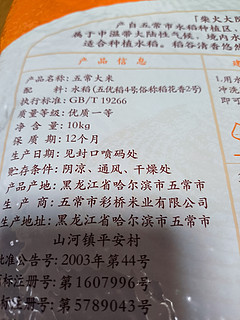 【柴火大
产自五常市水稻种植区
属于中温带大陆性气候,境内水
适合种植水稻。稻谷清香悠
产品信息
产品名称:五常大米
配 料:水稻(五优稻4号俗称稻花香2号)
执行标准:GB/T 19266
质量等级:优质一等
净 含 量:10kg
保 质 期:12个月
生产日期:见封口喷码处
贮存条件:阴凉、通风、干燥处
产品产地:黑龙江省哈尔滨市五常市
生 产 商:五常市彩桥米业有限公司
生产地址:黑龙江省哈尔滨市五常市
山河镇平安村
批准公告:2003年第44号
商标注册号:第1607996号
商标注册号:第5789043号
1.用
冲洗
即可
2.